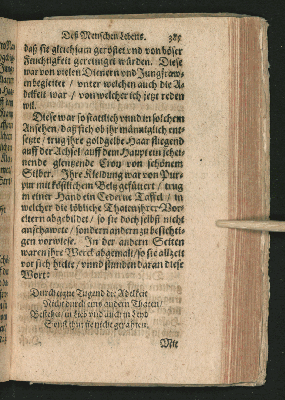 Deß Menschen Lebens. 385
daß sie gleichsam geröstet vnd von böser
Feuchtigkeit gereiniget würden. Diese
war von vielen Dienern vnd Jungfrew-
en begleitet / vnter welchen auch die A-
delkeit war / von welcher ich jetzt reden
wil.
Diese war so stattlich vnnd in solchem
Ansehen / daß sich ob ihr männiglich ent-
setzte / trug ihre goldgelbe Haar fliegend
auff der Achsel / auff dem Haupt ein schei-
nende glentzende Cron von schönem
Silber. Ihre Kleidung war von Pur-
pur mit köstlichem Beltz gefüttert / trug
in einer Hand ein Cederne Taffel / in
welcher die löbliche Thaten jhrer Vor-
eltern abgebildet / so sie doch selbst nicht
anschawete / sondern andern zu besichti-
gen vorwiese. In der andern Seiten
waren jhre Werck abgemalt / so sie allzeit
vor sich hielte / vnnd stunden daran diese
Wort:
Durch eigne Tugend die Adelkeit
Nicht durch eins andern Thaten /
Bestehet, in Lieb vnd auch in Leid
Sonst thut sie nicht gerahten.
Mit